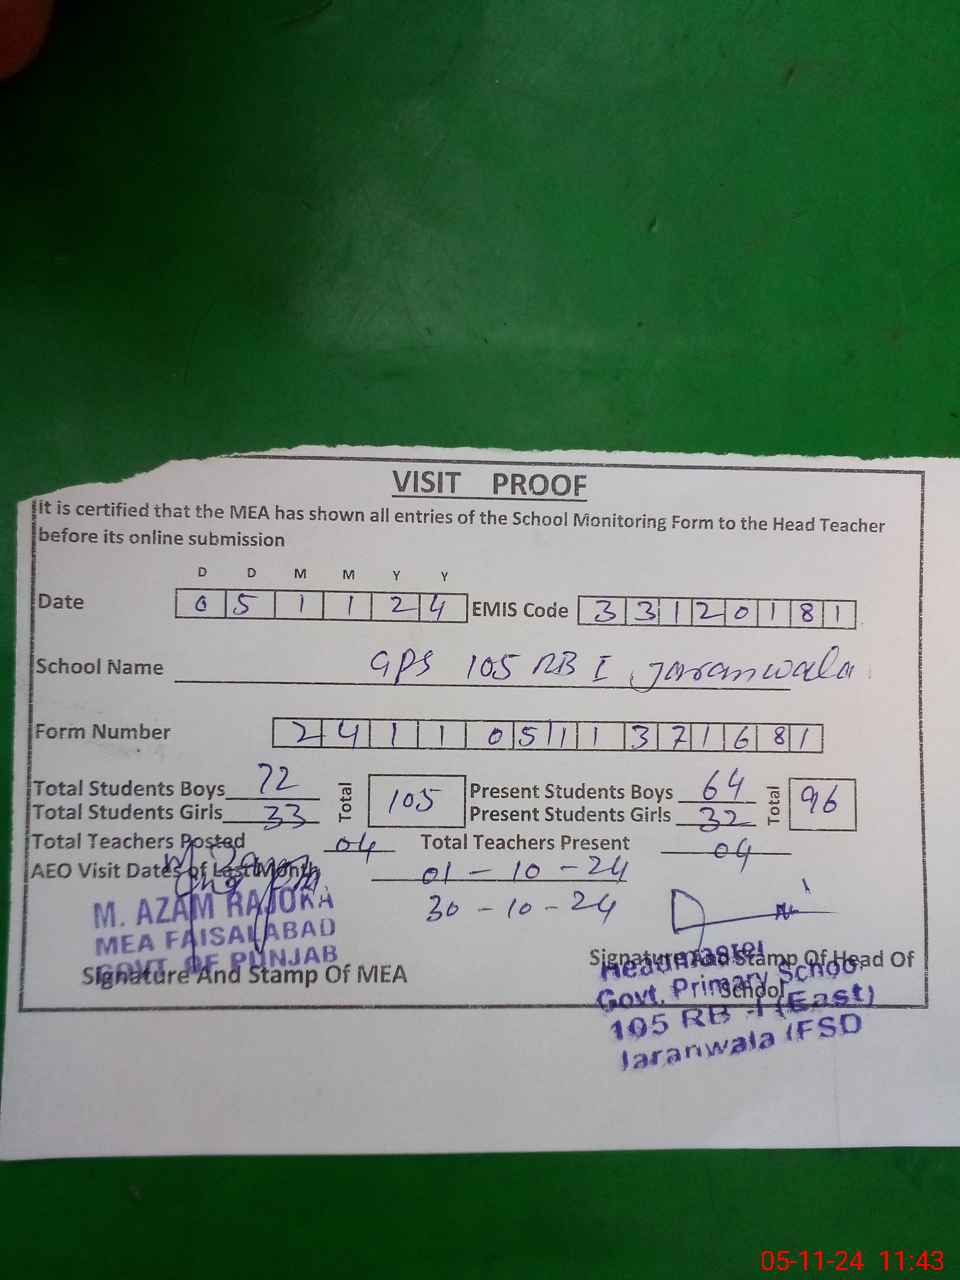 VISIT PROOF
It is certified that the MEA has shown all entries of the School Monitoring Form to the Head Teacher
before its online submission
D D M M Y Y
Date 0 5 1 1 2 4 EMIS Code 3 3 1 2 0 1 8 1
School Name GPS 105 RB I, Jaranwala
Form Number 2 4 1 1 0 5 1 1 3 7 1 6 8 1
Total Students Boys 72 Total 105 Present Students Boys 64 Total 96
Total Students Girls 33 Present Students Girls 32
Total Teachers Posted 04 Total Teachers Present 04
AEO Visit Dates of Last Month 01 - 10 - 24
30 - 10 - 24
M. AZAM RAJOKA
MEA FAISALABAD
GOVT. OF PUNJAB
Signature And Stamp Of MEA
Signature And Stamp Of Head Of
School
Headmaster
Govt. Primary School
105 RB -I (East)
Jaranwala (FSD
05-11-24 11:43